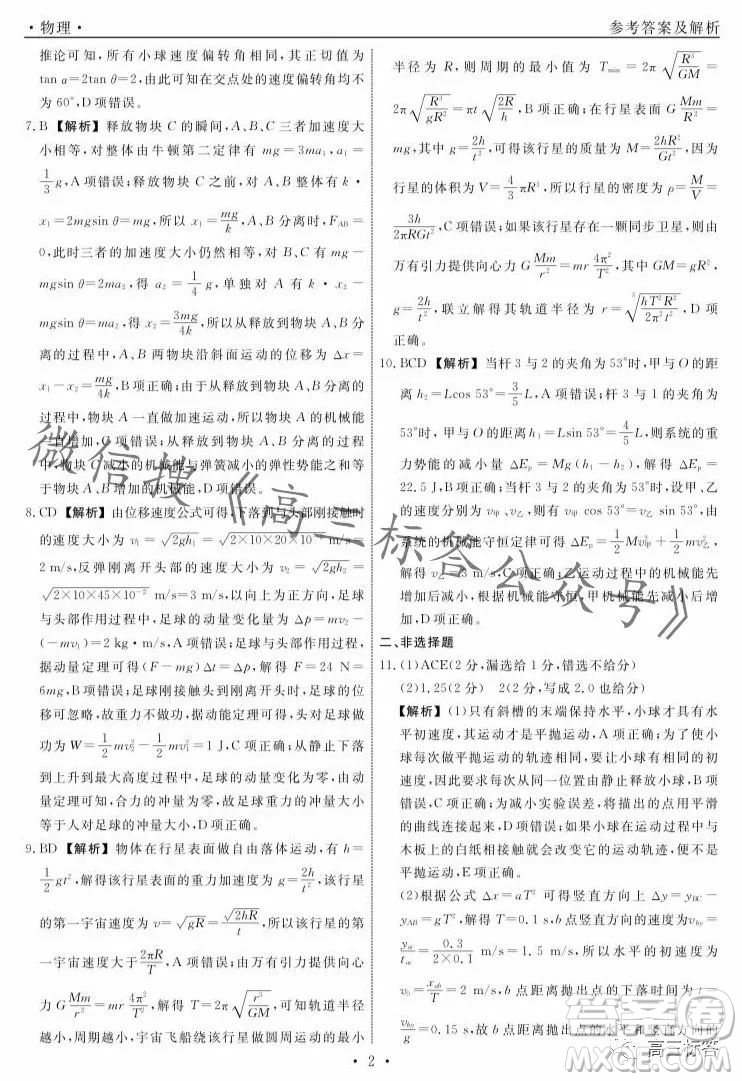 ·物理·
参考答案及解析
推论可知,所有小球速度偏转角相同,其正切值为
tan α=2tan θ=2,由此可知在交点处的速度偏转角均不
为60°,D项错误。
7. B 【解析】释放物块 C 的瞬间,A、B、C 三者加速度大
小相等,对整体由牛顿第二定律有 mg=3ma₁,a₁=
1/3 g,A项错误;释放物块 C 之前,对 A、B 整体有 k·
x₁=2mgsin θ=mg,所以 x₁=mg/k,A、B分离时,F_AB=
0,此时三者的加速度大小仍然相等,对 B、C 有 mg-
mgsin θ=2ma₂,得 a₂=1/4 g,单独对 A 有 k·x₂-
mgsin θ=ma₂,得 x₂=3mg/4k,所以从释放物块 C 到 A、B 分
离的过程中,A、B 两物块沿斜面运动的位移为 Δx=
x₁-x₂=mg/4k,B项正确;由于从释放物块 C 到 A、B 分离的
过程中,物块 A 一直做加速运动,所以物块 A 的机械能
一直增加,C项错误;从释放物块 C 到 A、B 分离的过程
中,物块 C 减小的机械能与弹簧减小的弹性势能之和
等于物块 A、B增加的机械能,D项错误。
8. CD 【解析】由位移速度公式可得,下落到与头部刚接触时
的速度大小为 v₁=√(2gh₁)=√(2×10×20×10⁻²) m/s=
2 m/s,反弹刚离开头部的速度大小为 v₂=√(2gh₂)=
√(2×10×45×10⁻²) m/s=3 m/s,以向上为正方向,与
头部作用过程中,足球的动量变化量为 Δp=mv₂-
(-mv₁)=2 kg·m/s,A项错误;足球与头部作用过程,根
据动量定理可得 (F-mg)Δt=Δp,解得 F=24 N=
6mg,B项错误;足球刚接触到头部到刚离开头部的位
移可忽略,故重力不做功,根据动能定理可知,头部做
功为 W=1/2 mv₂²-1/2 mv₁²=1 J,C项正确;从静止下落
到上升到最高点过程中,足球的动量变化为零,由动
量定理可知,合力的冲量为零,故重力的冲量大小等
于人对足球的冲量大小,D项正确。
9. BD 【解析】物体在行星表面做自由落体运动,有 h=
1/2 gt²,解得该行星表面的重力加速度为 g=2h/t²,该行星
的第一宇宙速度为 v=√(gR)=√(2hR)/t,所以该行星的第
一宇宙速度大于2πR/T,A项错误;由万有引力提供向心
力 G Mm/r²=mr 4π²/T²,解得 T=2π√(r³/GM),轨道半径越小周期
越小,周期最小时,宇宙飞船绕该行星做圆周运动的轨道
半径为 R,则周期的最小值为 T_min=2π√(R³/GM)=
2π√(R³/gR²)=πt√(2R/h),B项正确;在行星表面 G Mm/R²=
mg,其中 g=2h/t²,可得该行星的质量为 M=2hR²/Gt²,因为
行星的体积为 V=4/3 πR³,所以行星的密度为 ρ=M/V=
3h/2πRGt²,C项错误;如果该行星存在一颗同步卫星,由
万有引力提供向心力 G Mm/r²=mr 4π²/T²,GM=gR²,
g=2h/t²,联立解得其轨道半径为 r=∛(hT²R²/2π²t²),D项
正确。
10. BCD 【解析】当杆 3 与 2 的夹角为 53°时,甲与 O 的距
离 h₂=Lcos 53°=3/5 L,A项错误;杆 3 与 1 的夹角为
53°时,甲与 O 的距离 h₁=Lsin 53°=4/5 L,则系统的重
力势能的减小量 ΔE_p=Mg(h₁-h₂),解得 ΔE_p=
22.5 J,B项正确;当杆 3 与 2 的夹角为53°时,设甲、乙
的速度分别为 v甲、v乙,则有 v甲 cos 53°=v乙 sin 53°,由
系统的机械能守恒定律可得 ΔE_p=1/2 Mv甲²+1/2 mv乙²,
解得 v乙=2 m/s,C项正确;乙运动过程中机械能先
增加后减小,甲机械能先减小后增加,D项正确。
二、非选择题
11. (1)ACE(2分,漏选给1分,错选不给分)
(2)1.25(2分) 2(2分,写成2.0也给分)
【解析】(1)只有斜槽的末端保持水平,小球才具有水
平初速度,其运动才是平抛运动,A项正确;为了使小
球每次做平抛运动的轨迹相同,要让它具有相同的初
速度,因此要求每次从同一位置由静止释放小球,B项
错误,C项正确;为减小实验误差,将描出的点用平滑
的曲线连接起来,D项错误;小球在运动过程中若与
木板上的白纸相接触就会改变它的运动轨迹,便不是
平抛运动,E项正确。
(2)根据公式 Δx=aT² 可得竖直方向上 Δy=y_BC-
y_AB=gT²,解得 T=0.1 s,b 点竖直方向的速度为v_by=
y_ac/t_ac=0.3/(2×0.1) m/s=1.5 m/s,所以水平的初速度为
v₀=x_ab/T=2 m/s,b 点距离抛出点的下落时间为 t=
v_by/g=0.15 s,故 b 点距离抛出点的水平和竖直方向的
·2·
微信搜《高三标答公众号》
高三标答
答案圈
MXQE.COM